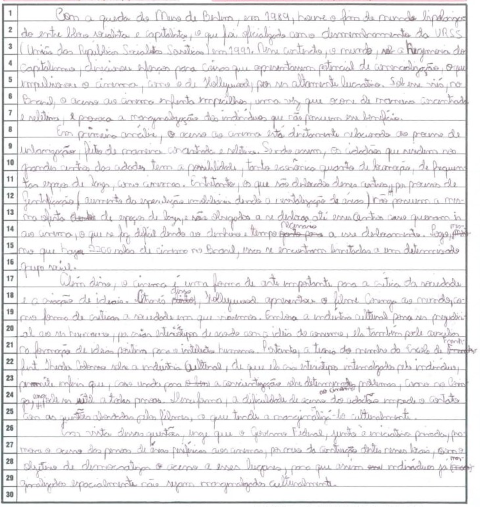 1 Com a queda do Muro de Berlim, em 1989, houve o fim do mundo bipolariza-
2 do entre bloco socialista e capitalista, o que foi oficializado com o desmembramento da URSS
3 (União das Repúblicas Socialistas Soviéticas) em 1991. Nesse contexto, o mundo, sob a hegemonia do
4 Capitalismo, direcionou esforços para coisas que apresentavam potencial de comercialização, o que
5 impulsionou o cinema, como o de Hollywood, por ser altamente lucrativo. Sob esse viés, no
6 Brasil, o acesso ao cinema enfrenta empecilhos, uma vez que ocorre de maneira concentrada
7 e seletiva, e provoca a marginalização dos indivíduos que não possuem esse benefício.
8 Em primeira análise, o acesso ao cinema está diretamente relacionado ao processo de
9 urbanização, feito de maneira concentrada e seletiva. Sendo assim, os cidadãos que residem nos
10 grandes centros das cidades têm a possibilidade, tanto econômica quanto de locomoção, de frequen-
11 tar espaços de lazer, como cinemas. Entretanto, os que são distantes desses centros, por processo de
12 gentrificação (aumento da especulação imobiliária devido a revitalização de áreas) não possuem a mes-
13 ma oferta de espaço de lazer, e são obrigados a se deslocar até esse centro caso queiram ir
14 ao cinema, o que se faz difícil devido ao dinheiro e tempo necessário para a esse deslocamento. Logo, mes-
15 mo que haja 2200 salas de cinema no Brasil, elas se encontram limitadas a um determinado
16 grupo social.
17 Além disso, o cinema é uma forma de arte importante para a crítica da sociedade
18 e a criação de ideais. Hollywood apresentou o filme
19 como forma de crítica a sociedade em que vivemos. Embora a indústria cultural possa ser prejudici-
20 al ao ser humano, por criar estereótipos de acordo com a ideia de consumo, ela também pode
21 na formação de ideais positivos para o intelecto humano. Portanto, a teoria do membro da Escola de
22 Frankfurt Theodor Adorno sobre a indústria cultural, de que ela cria estereótipos internalizados pelo indivíduo,
23 permite inferir que, caso venda para a conscientização sobre determinado problema, como no
24 pode ser útil a todas pessoas. Dessa forma, a dificuldade de acesso ao cinema dos cidadãos impede o contato
25 com as questões abordadas pelos filmes, o que tende a marginalizá-lo culturalmente.
26 Com vista dessas questões, urge que o Governo Federal, junto a iniciativa privada, pro-
27 mova o acesso das pessoas de áreas periféricas aos cinemas, por meio da construção destes nesses locais, com o
28 objetivo de democratizar o acesso a esses lugares, para que esses indivíduos já
29 marginalizados espacialmente não sejam marginalizados culturalmente.
30